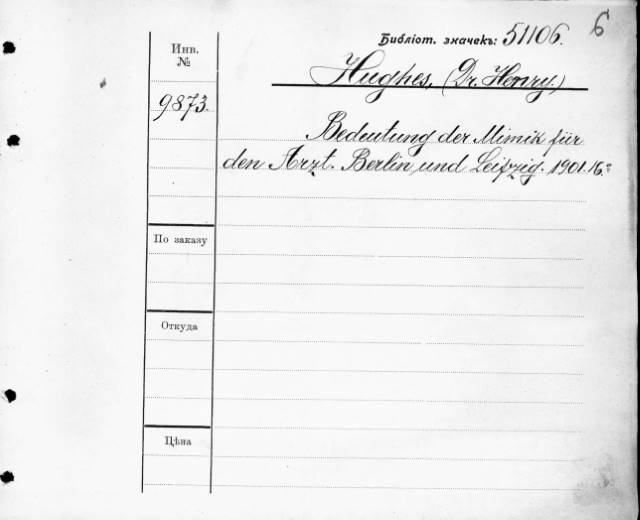 Библіот. значекъ: 51106. 6
Инв.
№
Hughes, (Dr. Henry.)
9873.
Bedeutung der Mimik für
den Arzt. Berlin und Leipzig. 1901. 16º
По заказу
Откуда
Цѣна